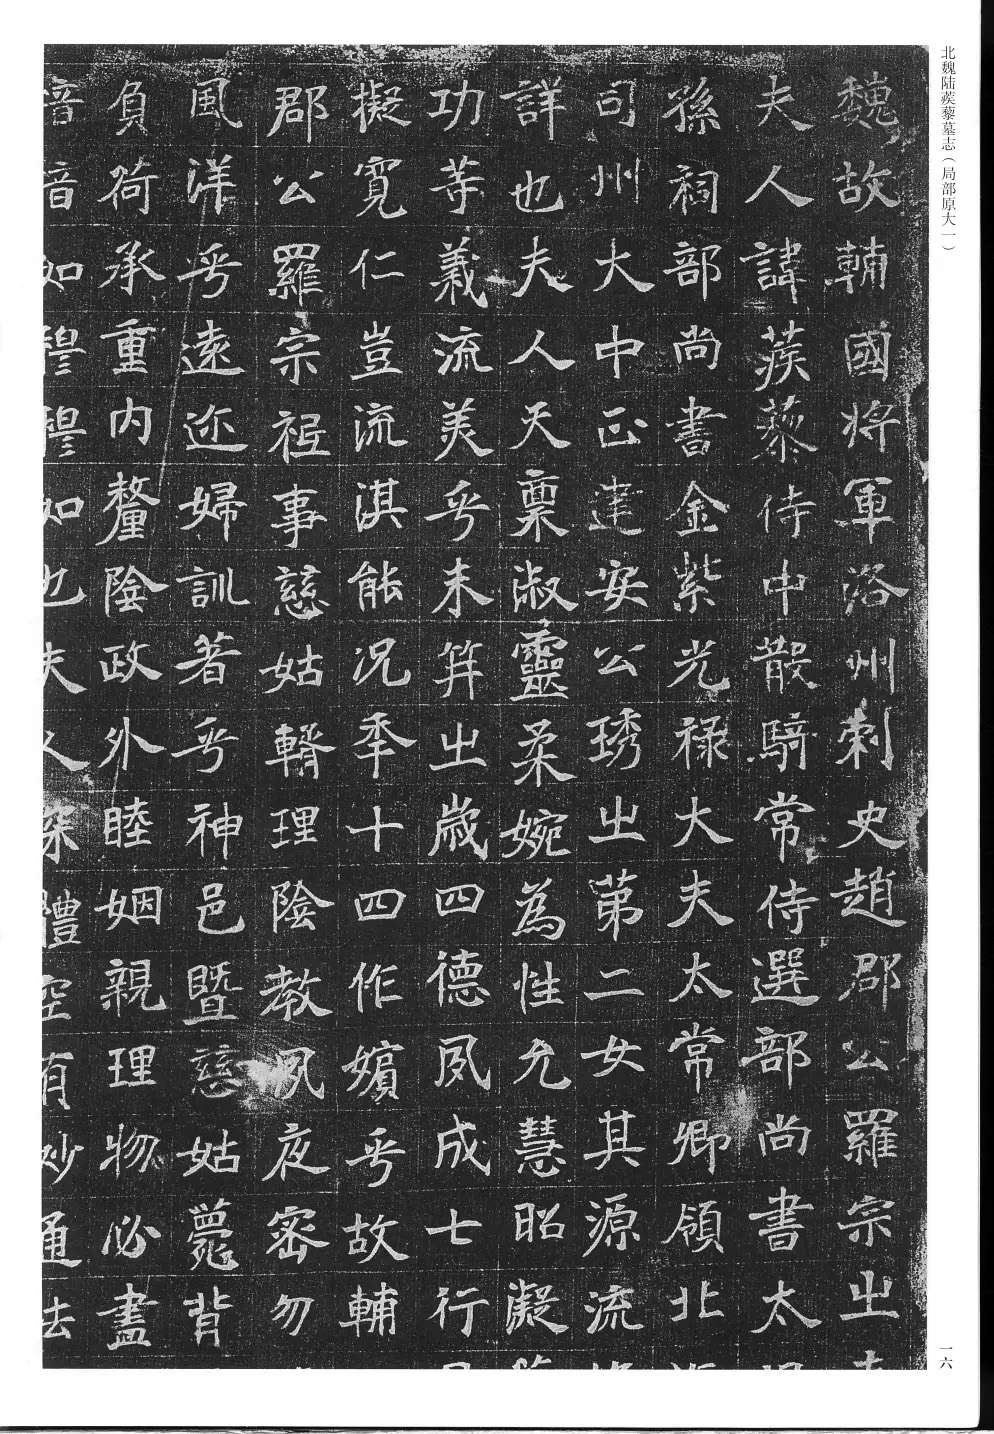 北魏陆蒺藜墓志（局部原大一）
魏故輔國將軍洛州刺史趙郡公羅宗之
夫人諱蒺蔾侍中散騎常侍選部尚書太
孫祠部尚書金紫光祿大夫太常卿領北
司州大中正建安公琇之第二女其源流
詳也夫人天稟淑靈柔婉為性允慧昭凝
功苇義流美乎未筓之歲四德夙成七行
擬寬仁豈流淇能況年十四作嬪乎故輔
郡公羅宗祗事慈姑輶理陰教夙夜密勿
風洋乎遠迩婦訓著乎神邑暨慈姑薨背
負荷承重內釐陰政外睦姻親理物必盡
愔愔如穆穆如也夫人深體空有妙通法
一六